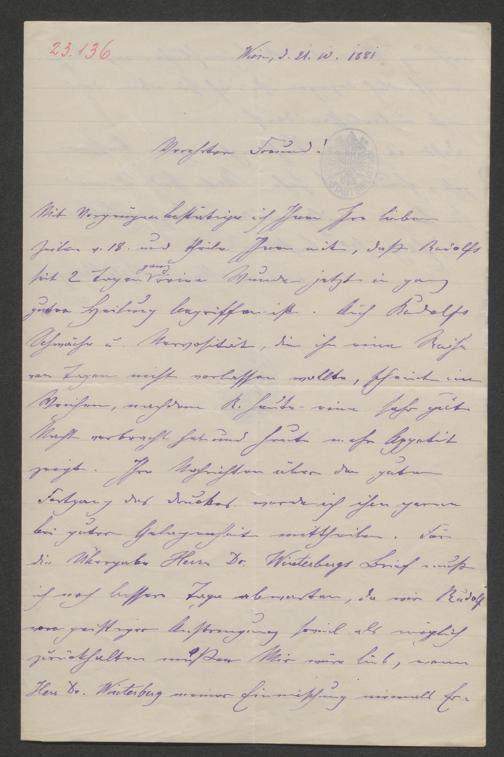 23.136
Wien, d. 21. IV. 1881
Verehrter Freund!
Mit Vergnügen bestätige ich Ihnen Ihre lieben
Zeilen v. 18. und theile Ihnen mit, daß Rudolfs
seit 2 Tagen ganz reine Wunde jetzt in ganz
guter Heilung begriffen ist. Auch Rudolfs
Schwäche u. Nervosität, die ihn eine Reihe
von Tagen nicht verlassen wollte, scheint im
Weichen, nachdem R. heute eine sehr gute
Nacht verbracht hat und heute mehr Appetit
zeigt. Ihre Nachrichten über den guten
Fortgang des Druckes werde ich ihm gerne
bei guter Gelegenheit mittheilen. Für
die Übergabe Herrn Dr. Winterbergs Brief muß
ich noch bessere Tage abwarten, da wir Rudolf
von geistiger Anstrengung soviel als möglich
zurückhalten müßen. Mir wäre lieb, wenn
Herr Dr. Winterberg meiner Einmischung niemals Er-